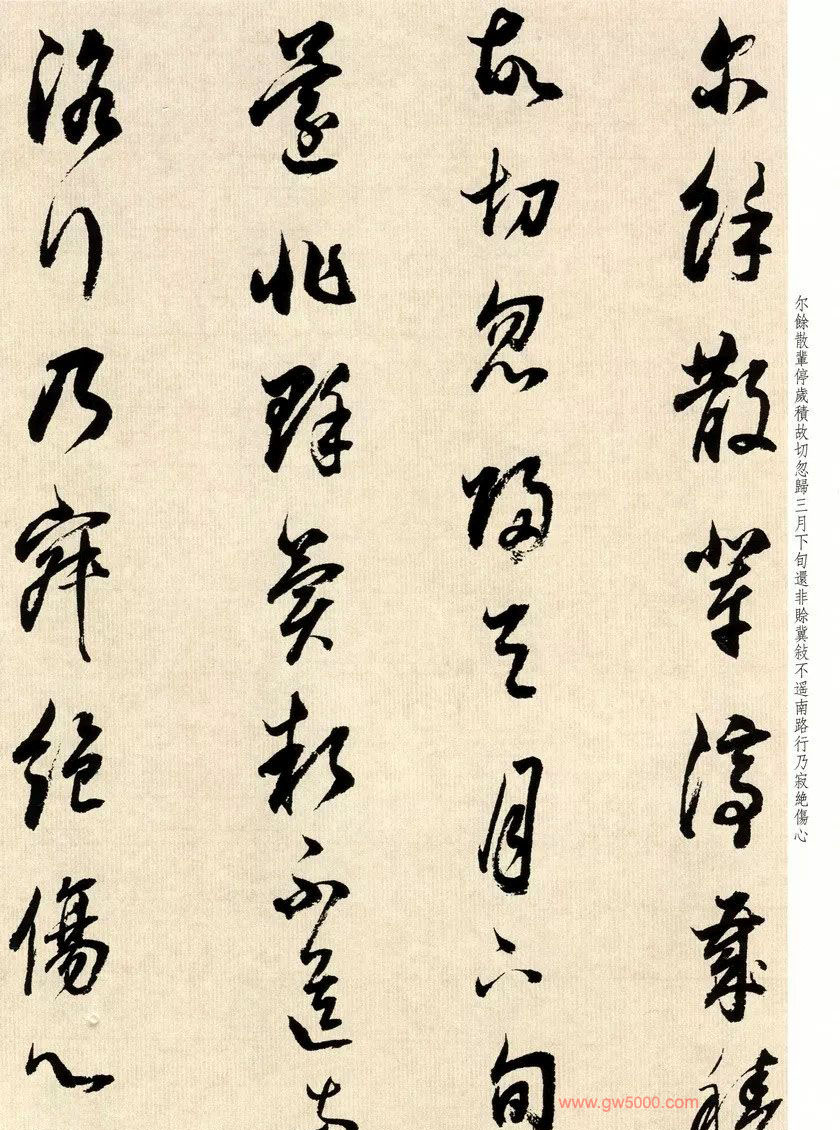 尔餘散輩停歲積
故切忽歸三月下旬
還非賒冀敍不遥南
路行乃寂絶傷心
尔餘散輩停歲積故切忽歸三月下旬還非賒冀敍不遥南路行乃寂絶傷心
www.gw5000.com